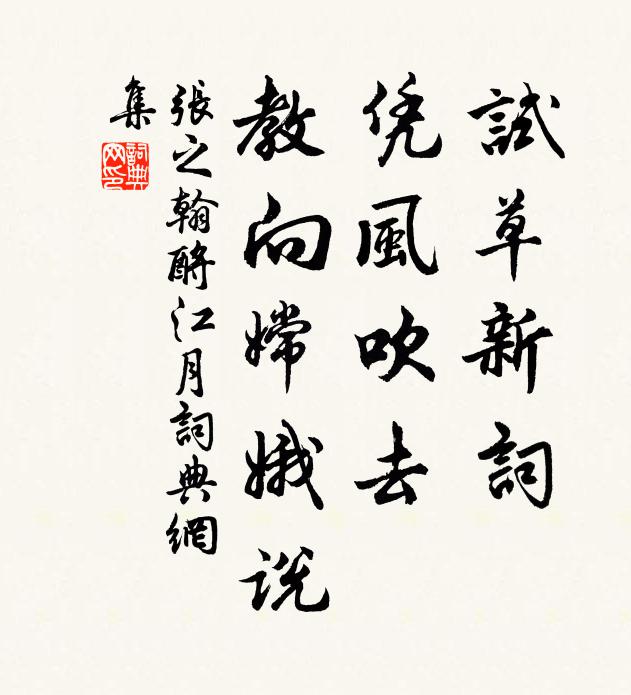 試草新詞
凭風吹去
教向嫦娥說
張之翰酹江月詞典網
集
詞典
网印